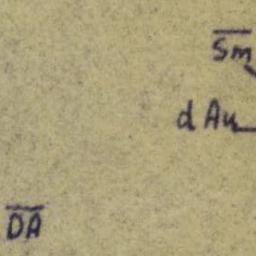 Sm
d Au
DA